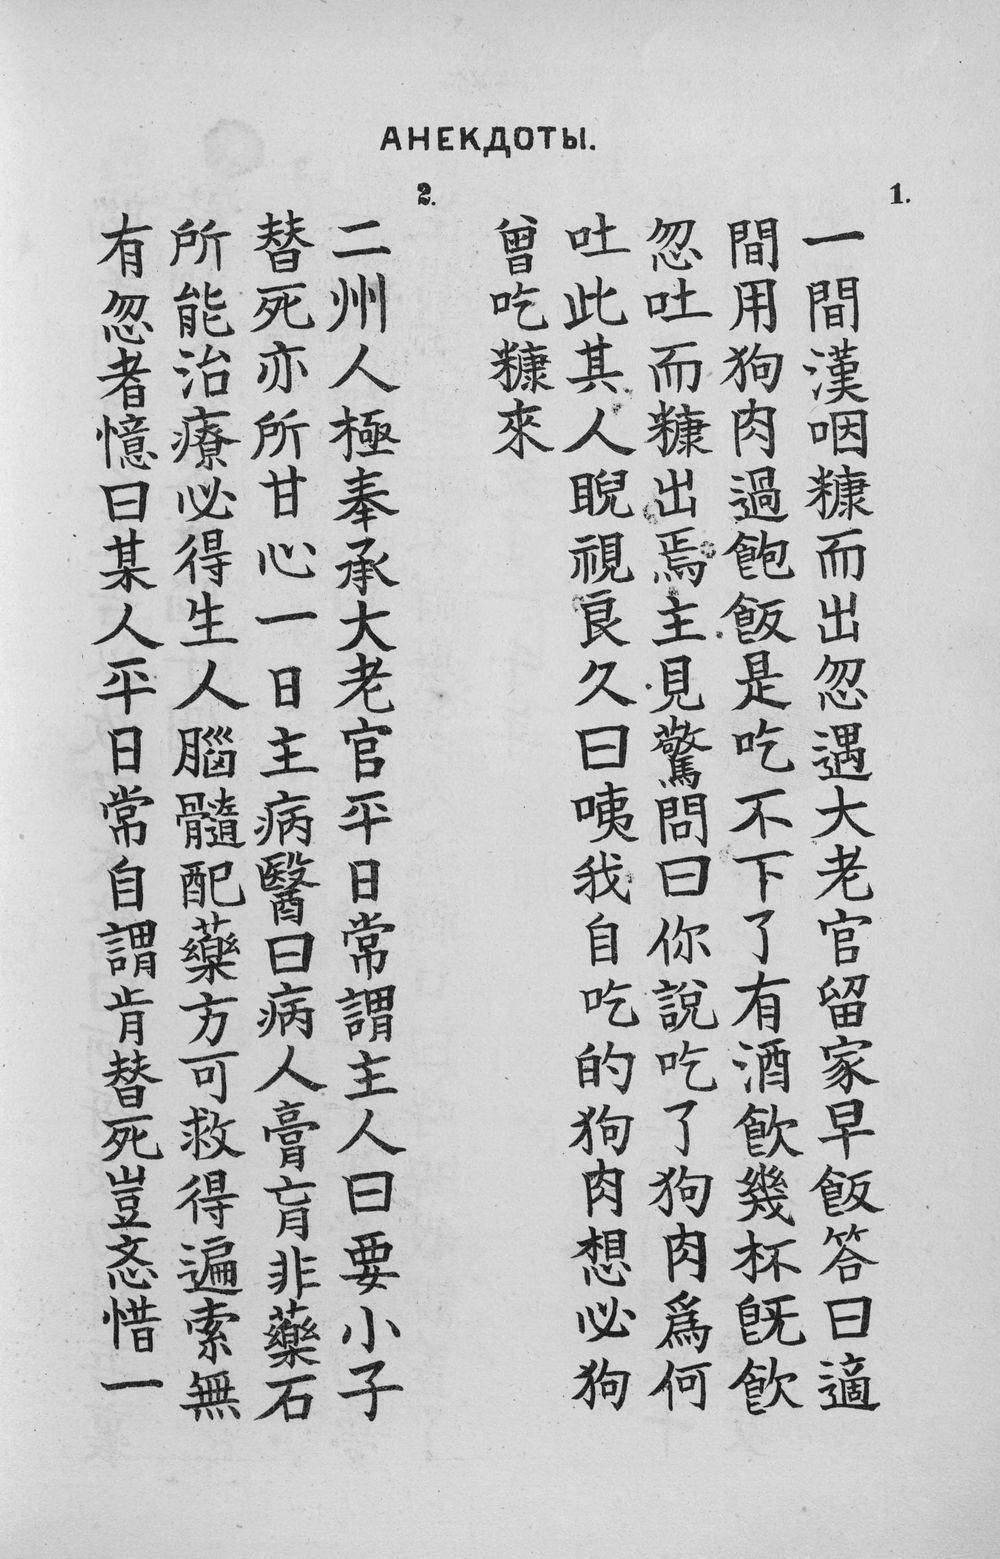 АНЕКДОТЫ.
1.
一間漢咽糠而出忽遇大老官留家早飯答曰適
間用狗肉過飽飯是吃不下了有酒飲幾杯旣飲
忽吐而糠出焉主見驚問曰你說吃了狗肉爲何
吐此其人睨視良久曰咦我自吃的狗肉想必狗
曾吃糠來
2.
二州人極奉承大老官平日常謂主人曰要小子
替死亦所甘心一日主病醫曰病人膏肓非藥石
所能治療必得生人腦髓配藥方可救得遍索無
有忽者憶曰某人平日常自謂肯替死豈忞惜一